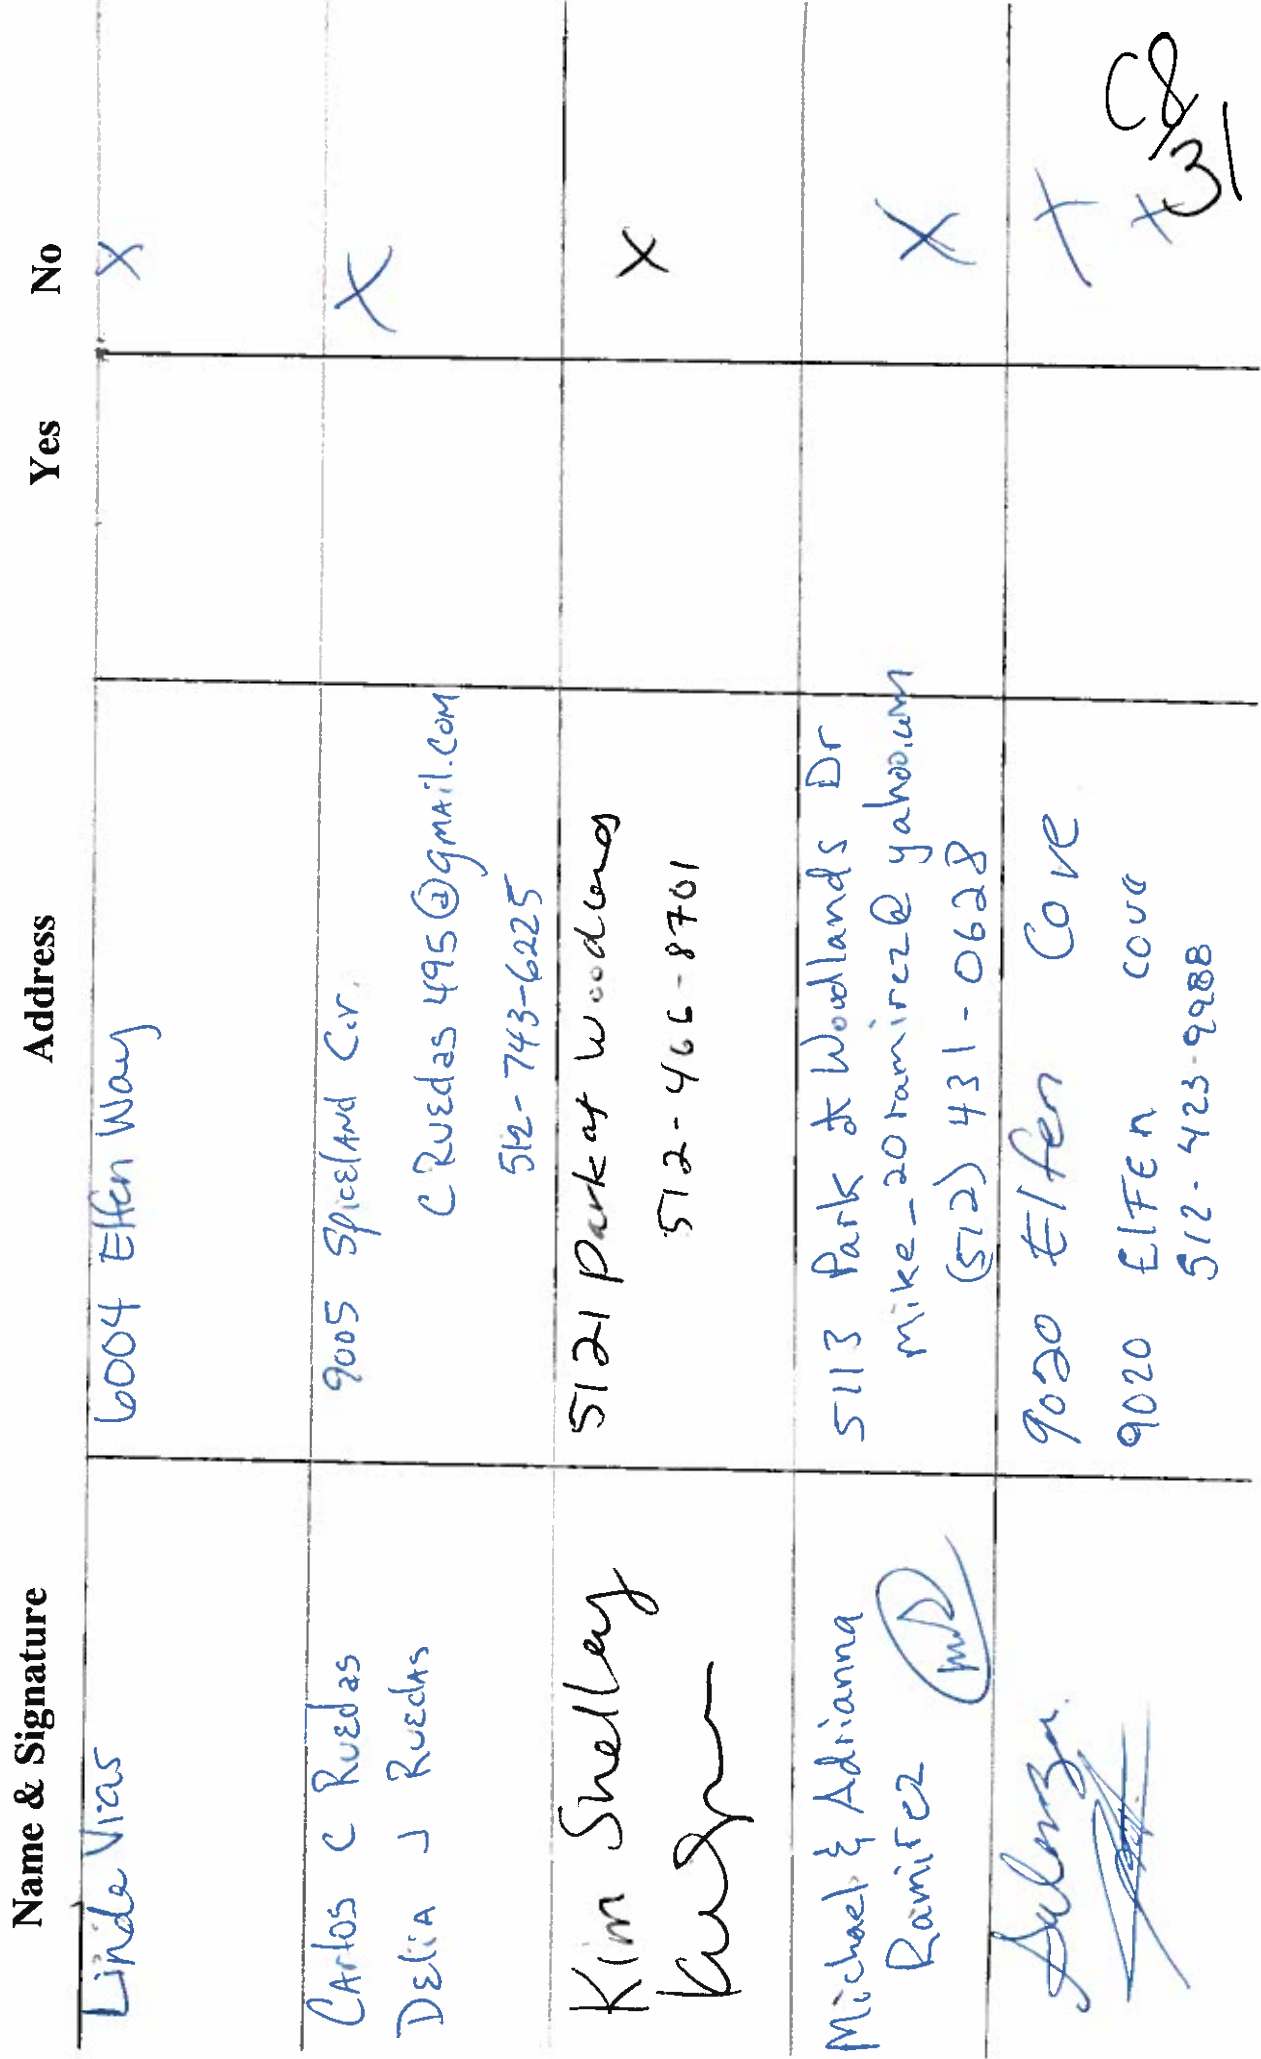 Name & Signature Address Yes No
Linda Vias 6004 Elfen Way X
Carlos C Ruedas 9005 Spiceland Cir. X
Delia J Ruedas C Ruedas 495@gmail.com
512-743-6225
Kim Shelley 5121 Park at Woodlands X
512-466-8701
Michael & Adrianna 5113 Park at Woodlands Dr X
Ramirez mike_20ramirez@yahoo.com
(512) 431-0628
9020 Elfen Cove X
9020 ElFEn cove X
512-423-9988
C8/31